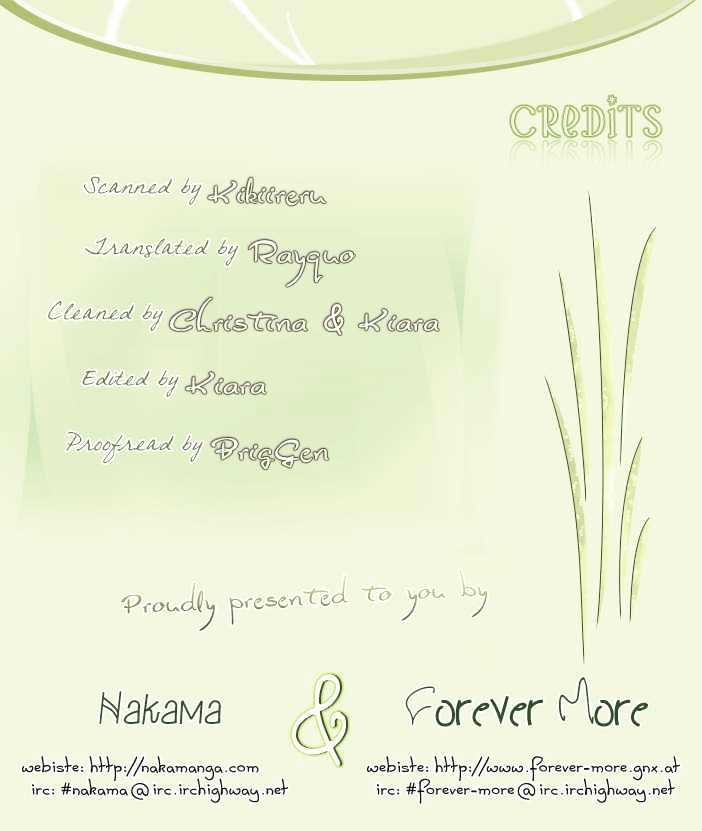 CREDITS
Scanned by Kikiireru
Translated by Rayquo
Cleaned by Christina & Kiara
Edited by Kiara
Proofread by BrigGen
Proudly presented to you by
Nakama & Forever More
webiste: http://nakamanga.com
irc: #nakama@irc.irchighway.net
webiste: http://www.forever-more.gnx.at
irc: #forever-more@irc.irchighway.net